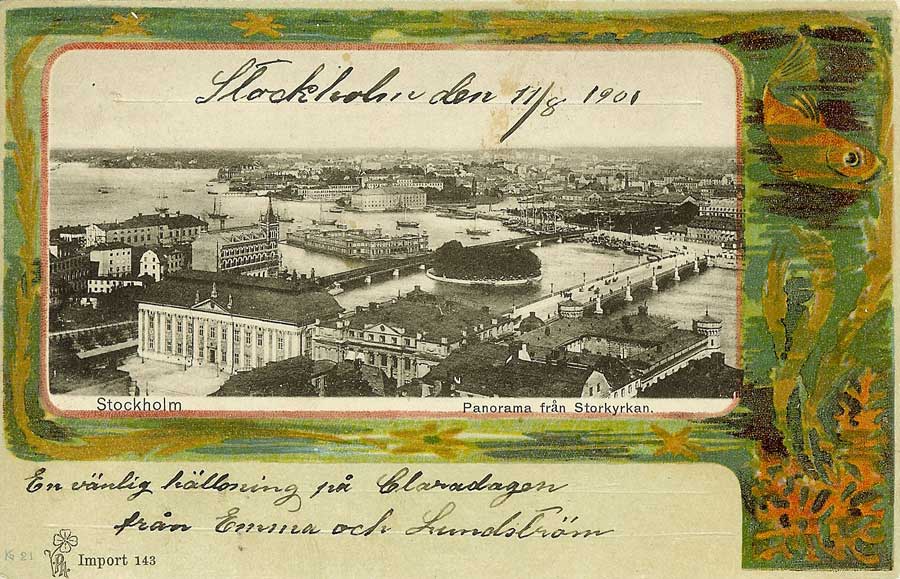 Stockholm den 11/8 1901
Stockholm
Panorama från Storkyrkan.
En vänlig hälsning på Claradagen
från Emma och Lundström
Import 143